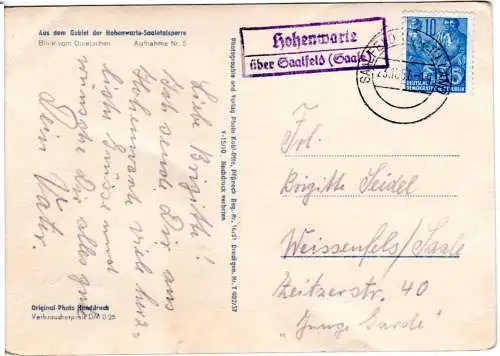 Aus dem Gebiet der Hohenwarte-Saaletalsperre
Blick vom Quietschen Aufnahme Nr. 5
Liebe Brigitte!
Ich sende Dir aus
Hohenwarte viele herz-
liche Grüsse und
wünsche Dir alles gute
Dein Vater.
Original Photo Handdruck
Verbraucherpreis DM 0,25
Photographie und Verlag Photo
Y-15/10 Nachdruck verboten
Hohenwarte
über Saalfeld (Saale)
10
DEUTSCHE
DEMOKRATISCHE REPUBLIK
Frl.
Brigitte Seidel
Weissenfels/Saale
Zeitzerstr. 40
"Junge Garde"